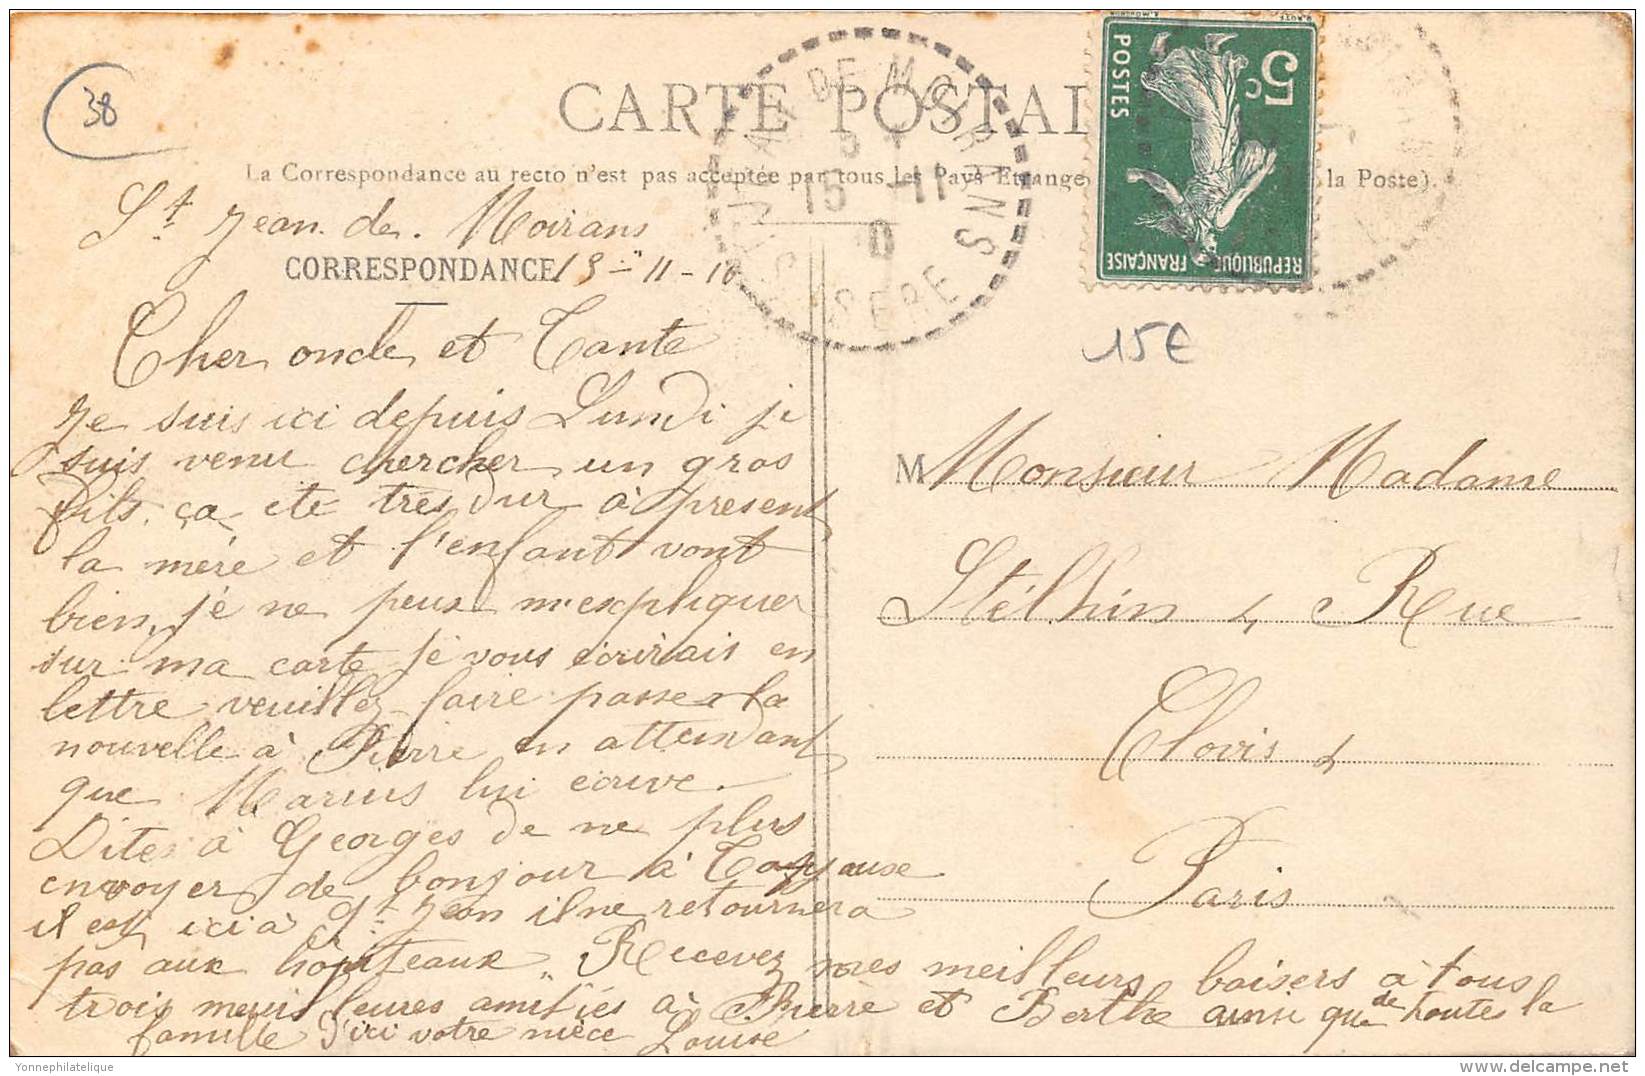 38
CARTE POSTAL
La Correspondance au recto n'est pas acceptée par tous les Pays Etrange la Poste).
ST JEAN DE MOIRANS
15 -11
10
ISERE
5c
POSTES
REPUBLIQUE FRANÇAISE
St Jean de Moirans
CORRESPONDANCE 15-11-10
15€
Cher oncle et Tante
Je suis ici depuis Lundi je
suis venu chercher un gros
fils. ça ete tres dur à present
la mère et l'enfant vont
bien, je ne peux m'expliquer
sur ma carte je vous écrirais en
lettre veuillez faire passer la
nouvelle à Pierre en attendant
que Marius lui ecrive.
Dites à Georges de ne plus
envoyer de bonjour à
il est ici à St Jean il ne retournera
pas aux hopiteaux. Recevez mes meilleurs baisers à tous
trois meuilleures amitiés à Pierre et Berthe ainsi que de toutes la
famille d'ici votre nièce Louise
M Monsieur Madame
Stélhin 4 Rue
Clovis 4
Paris
Yonnephilatelique
delcampe.net